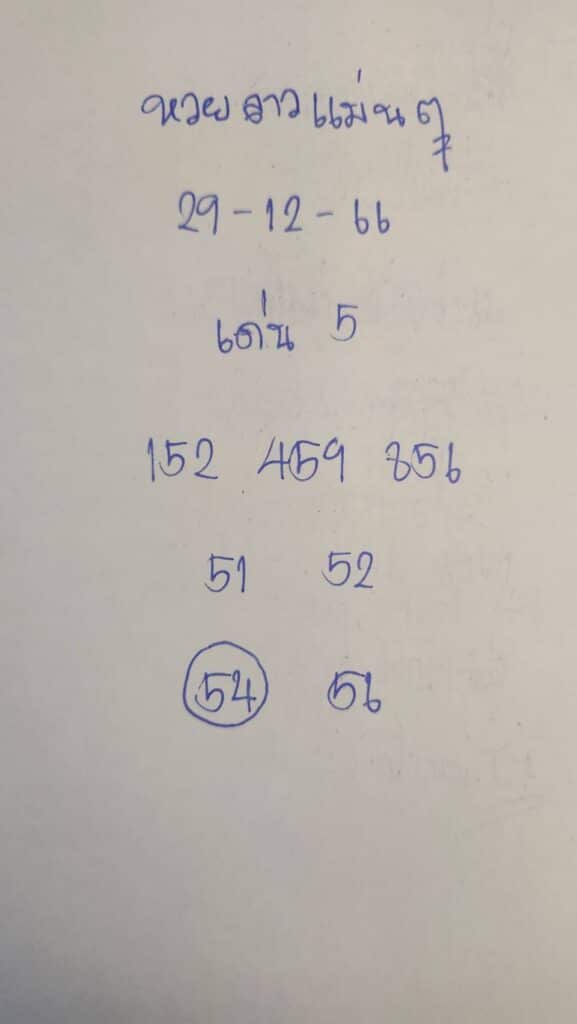 หวยลาวแม่นตู
29-12-66
เด่น 5
152 459 856
51 52
54 56